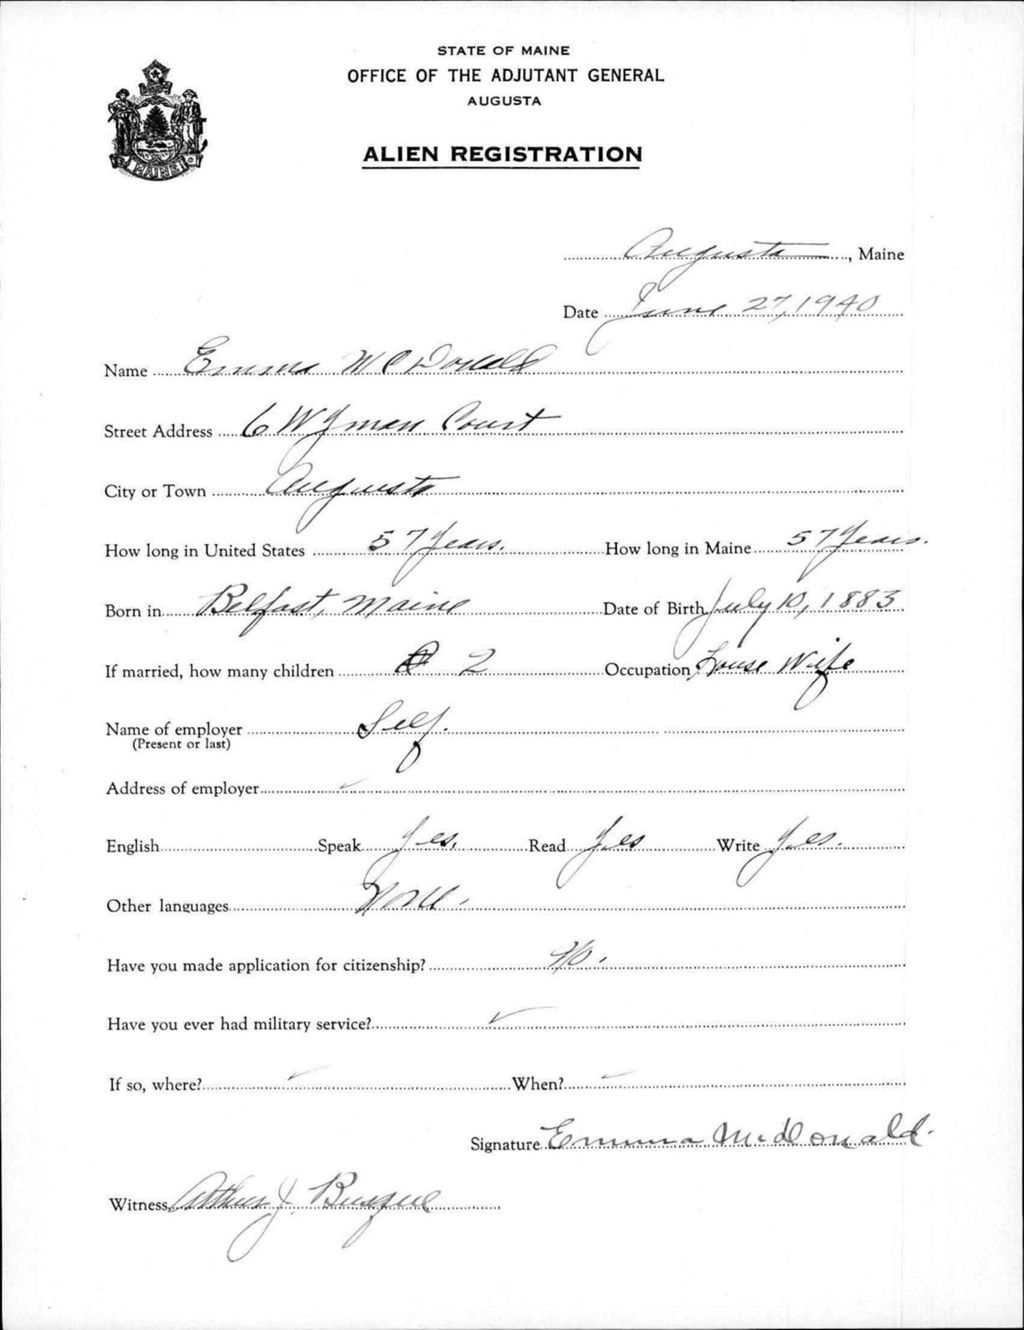 STATE OF MAINE
OFFICE OF THE ADJUTANT GENERAL
AUGUSTA
ALIEN REGISTRATION
MAINE
Augusta, Maine
Date June 27, 1940
Name Emma McDonald
Street Address 6 Wyman Court
City or Town Augusta
How long in United States 57 Years. How long in Maine 57 Years.
Born in Belfast, Maine Date of Birth July 10, 1883
If married, how many children 2 Occupation House Wife
Name of employer Self.
(Present or last)
Address of employer
English Speak Yes. Read Yes Write Yes.
Other languages None.
Have you made application for citizenship? No.
Have you ever had military service?
If so, where? When?
Signature Emma McDonald.
Witness Arthur J. Busque